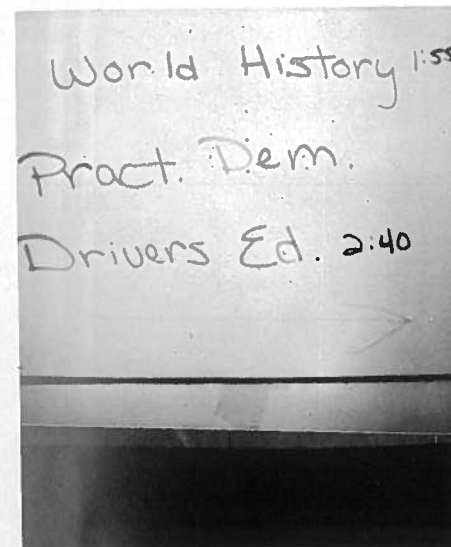 World History 1:55
Pract. Dem.
Drivers Ed. 2:40